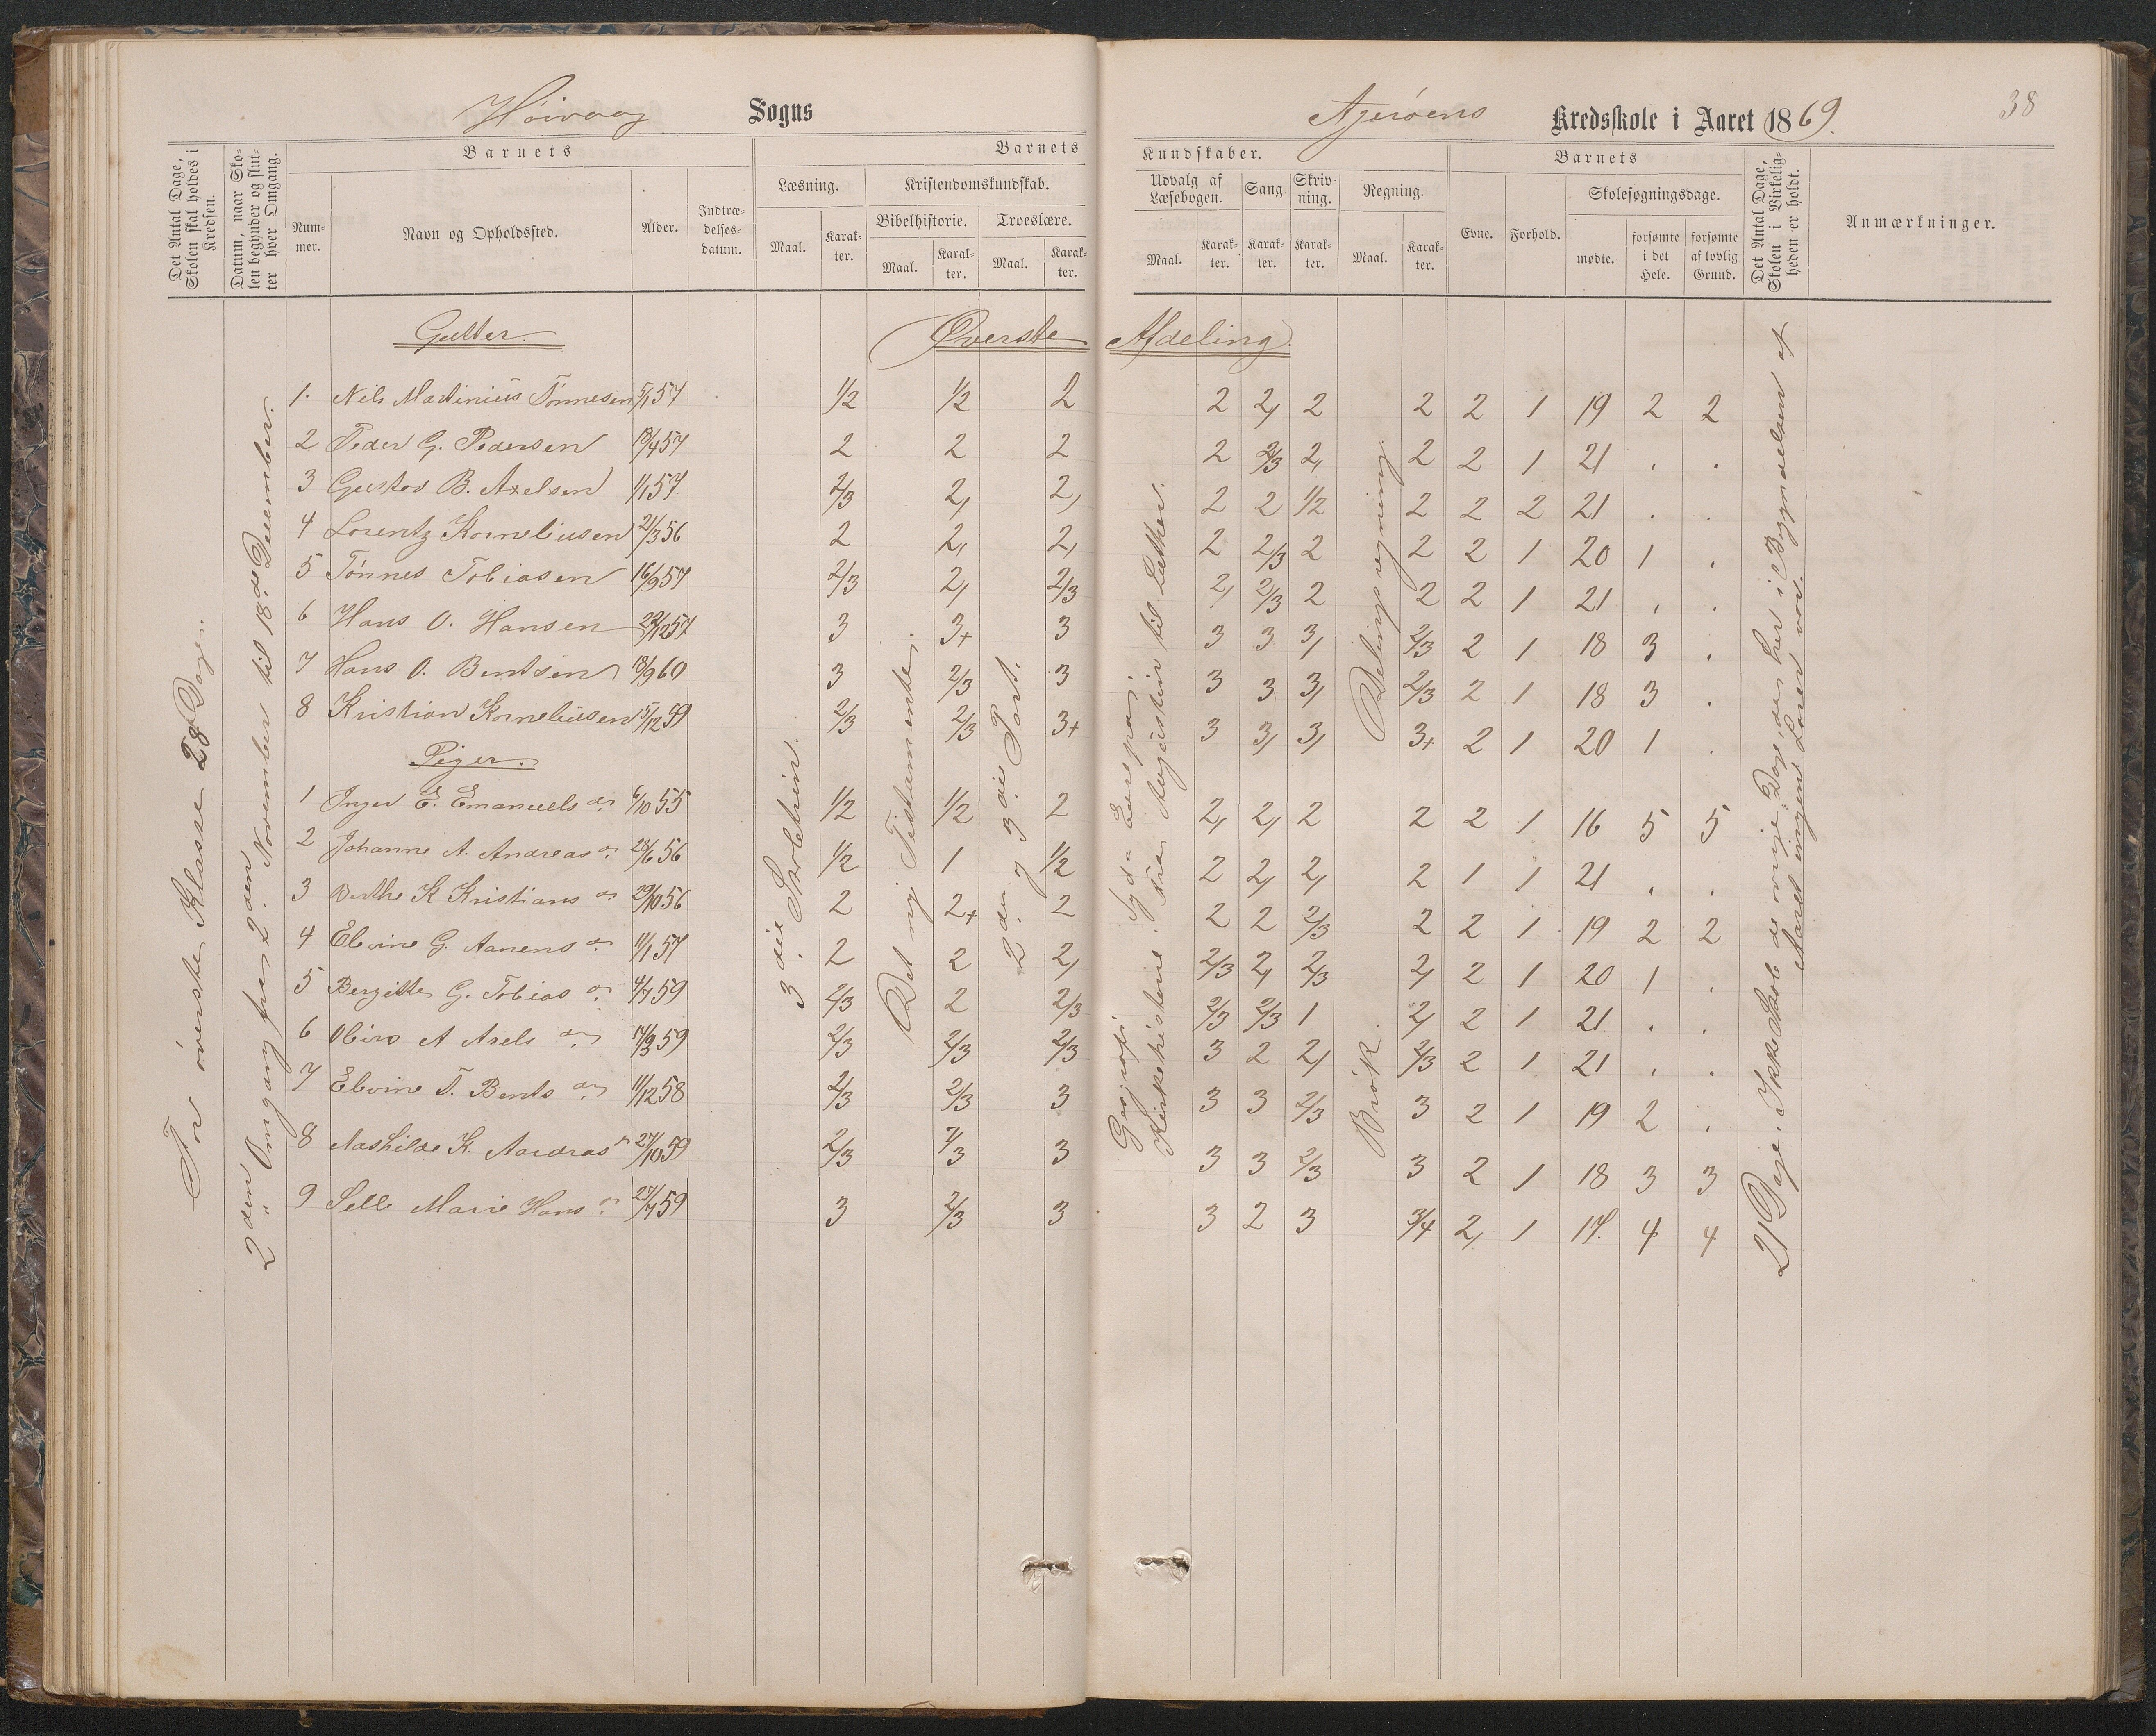 Høivaag Sogns
Agerøens Kredsskole i Aaret 1869.
38
Det Antal Dage, Skolen skal holdes i Kredsen.
Datum, naar Skolen begynder og slutter hver Omgang.
Barnets
Nummer.
Navn og Opholdssted.
Alder.
Indtrædelsesdatum.
Barnets
Læsning.
Maal.
Karakter.
Kristendomskundskab.
Bibelhistorie.
Maal.
Karakter.
Troeslære.
Maal.
Karakter.
Kundskaber.
Udvalg af Læsebogen.
Maal.
Karakter.
Sang.
Karakter.
Skrivning.
Karakter.
Regning.
Maal.
Karakter.
Barnets
Evne.
Forhold.
Skolesøgningsdage.
mødte.
forsømte i det Hele.
forsømte af lovlig Grund.
Det Antal Dage, Skolen i Virkeligheden er holdt.
Anmærkninger.
For øverste Klasse 28 Dage.
2den Omgang fra 2den November til 18de December.
Gutter. Øverste Afdeling.
1. Nils Martinius Tønnesen 5/1 57 1/2 1/2 2 2 2, 2 2 2 1 19 2 2
2 Peder G. Pedersen 18/4 57 2 2 2 2 2/3 2, 2 2 1 21 . .
3 Gustav B. Axelsen 1/1 57. 2/3 2, 2, 2 2 1/2 2 2 2 21 . .
4 Lorentz Korneliusen 21/3 56 2 2, 2, 2 2/3 2 2 2 1 20 1 .
5 Tønnes Tobiasen 16/9 57 2/3 2, 2/3 2, 2/3 2 2 2 1 21 . .
6 Hans O. Hansen 22/12 57 3 3+ 3 3 3 3, 2/3 2 1 18 3 .
7 Hans O. Bentsen 18/9 60 3 2/3 3 3 3 3, 2/3 2 1 18 3 .
8 Kristian Korneliusen 15/12 59 2/3 2/3 3+ 3 3, 3, 3+ 2 1 20 1 .
Piger.
1 Inger E. Emanuels dr 6/10 55 1/2 1/2 2 2, 2, 2 2 2 1 16 5 5
2 Johanne A. Andreas dr 28/6 56 1/2 1 1/2 2 2, 2, 2 1 1 21 . .
3 Berthe K Kristians dr 29/10 56 2 2+ 2 2 2 2/3 2 2 1 19 2 2
4 Elvine G. Aanens dr 11/1 57 2 2 2, 2/3 2, 2/3 2, 2 1 20 1 .
5 Bergitte G. Tobias dr 4/7 59 2/3 2 2/3 2/3 2/3 1 2, 2 1 21 . .
6 A Axels dr 59 2/3 2/3 2/3 3 2 2, 2/3 2 1 21 . .
7 Elvine T. Bents dr 11/12 58 2/3 2/3 3 3 3 2/3 3 2 1 19 2 .
8 K. 27/10 59 2/3 2/3 3 3 3 2/3 3 2 1 18 3 3
9 Marie Hans dr 59 3 2/3 3 3 2 3 3/4 2, 1 17. 4 4
3die Skoletrin.
Det ny Testamente.
2den og 3die Part.
Geografi: Syd Europa.
Kirkehistorie. Fra Augustin til Luther.
Brøk. Delingsregning.
21 Dage. Ikke Skole de øvrige Dage, da her i Begyndelsen af
Aaret ingen Lærer var.